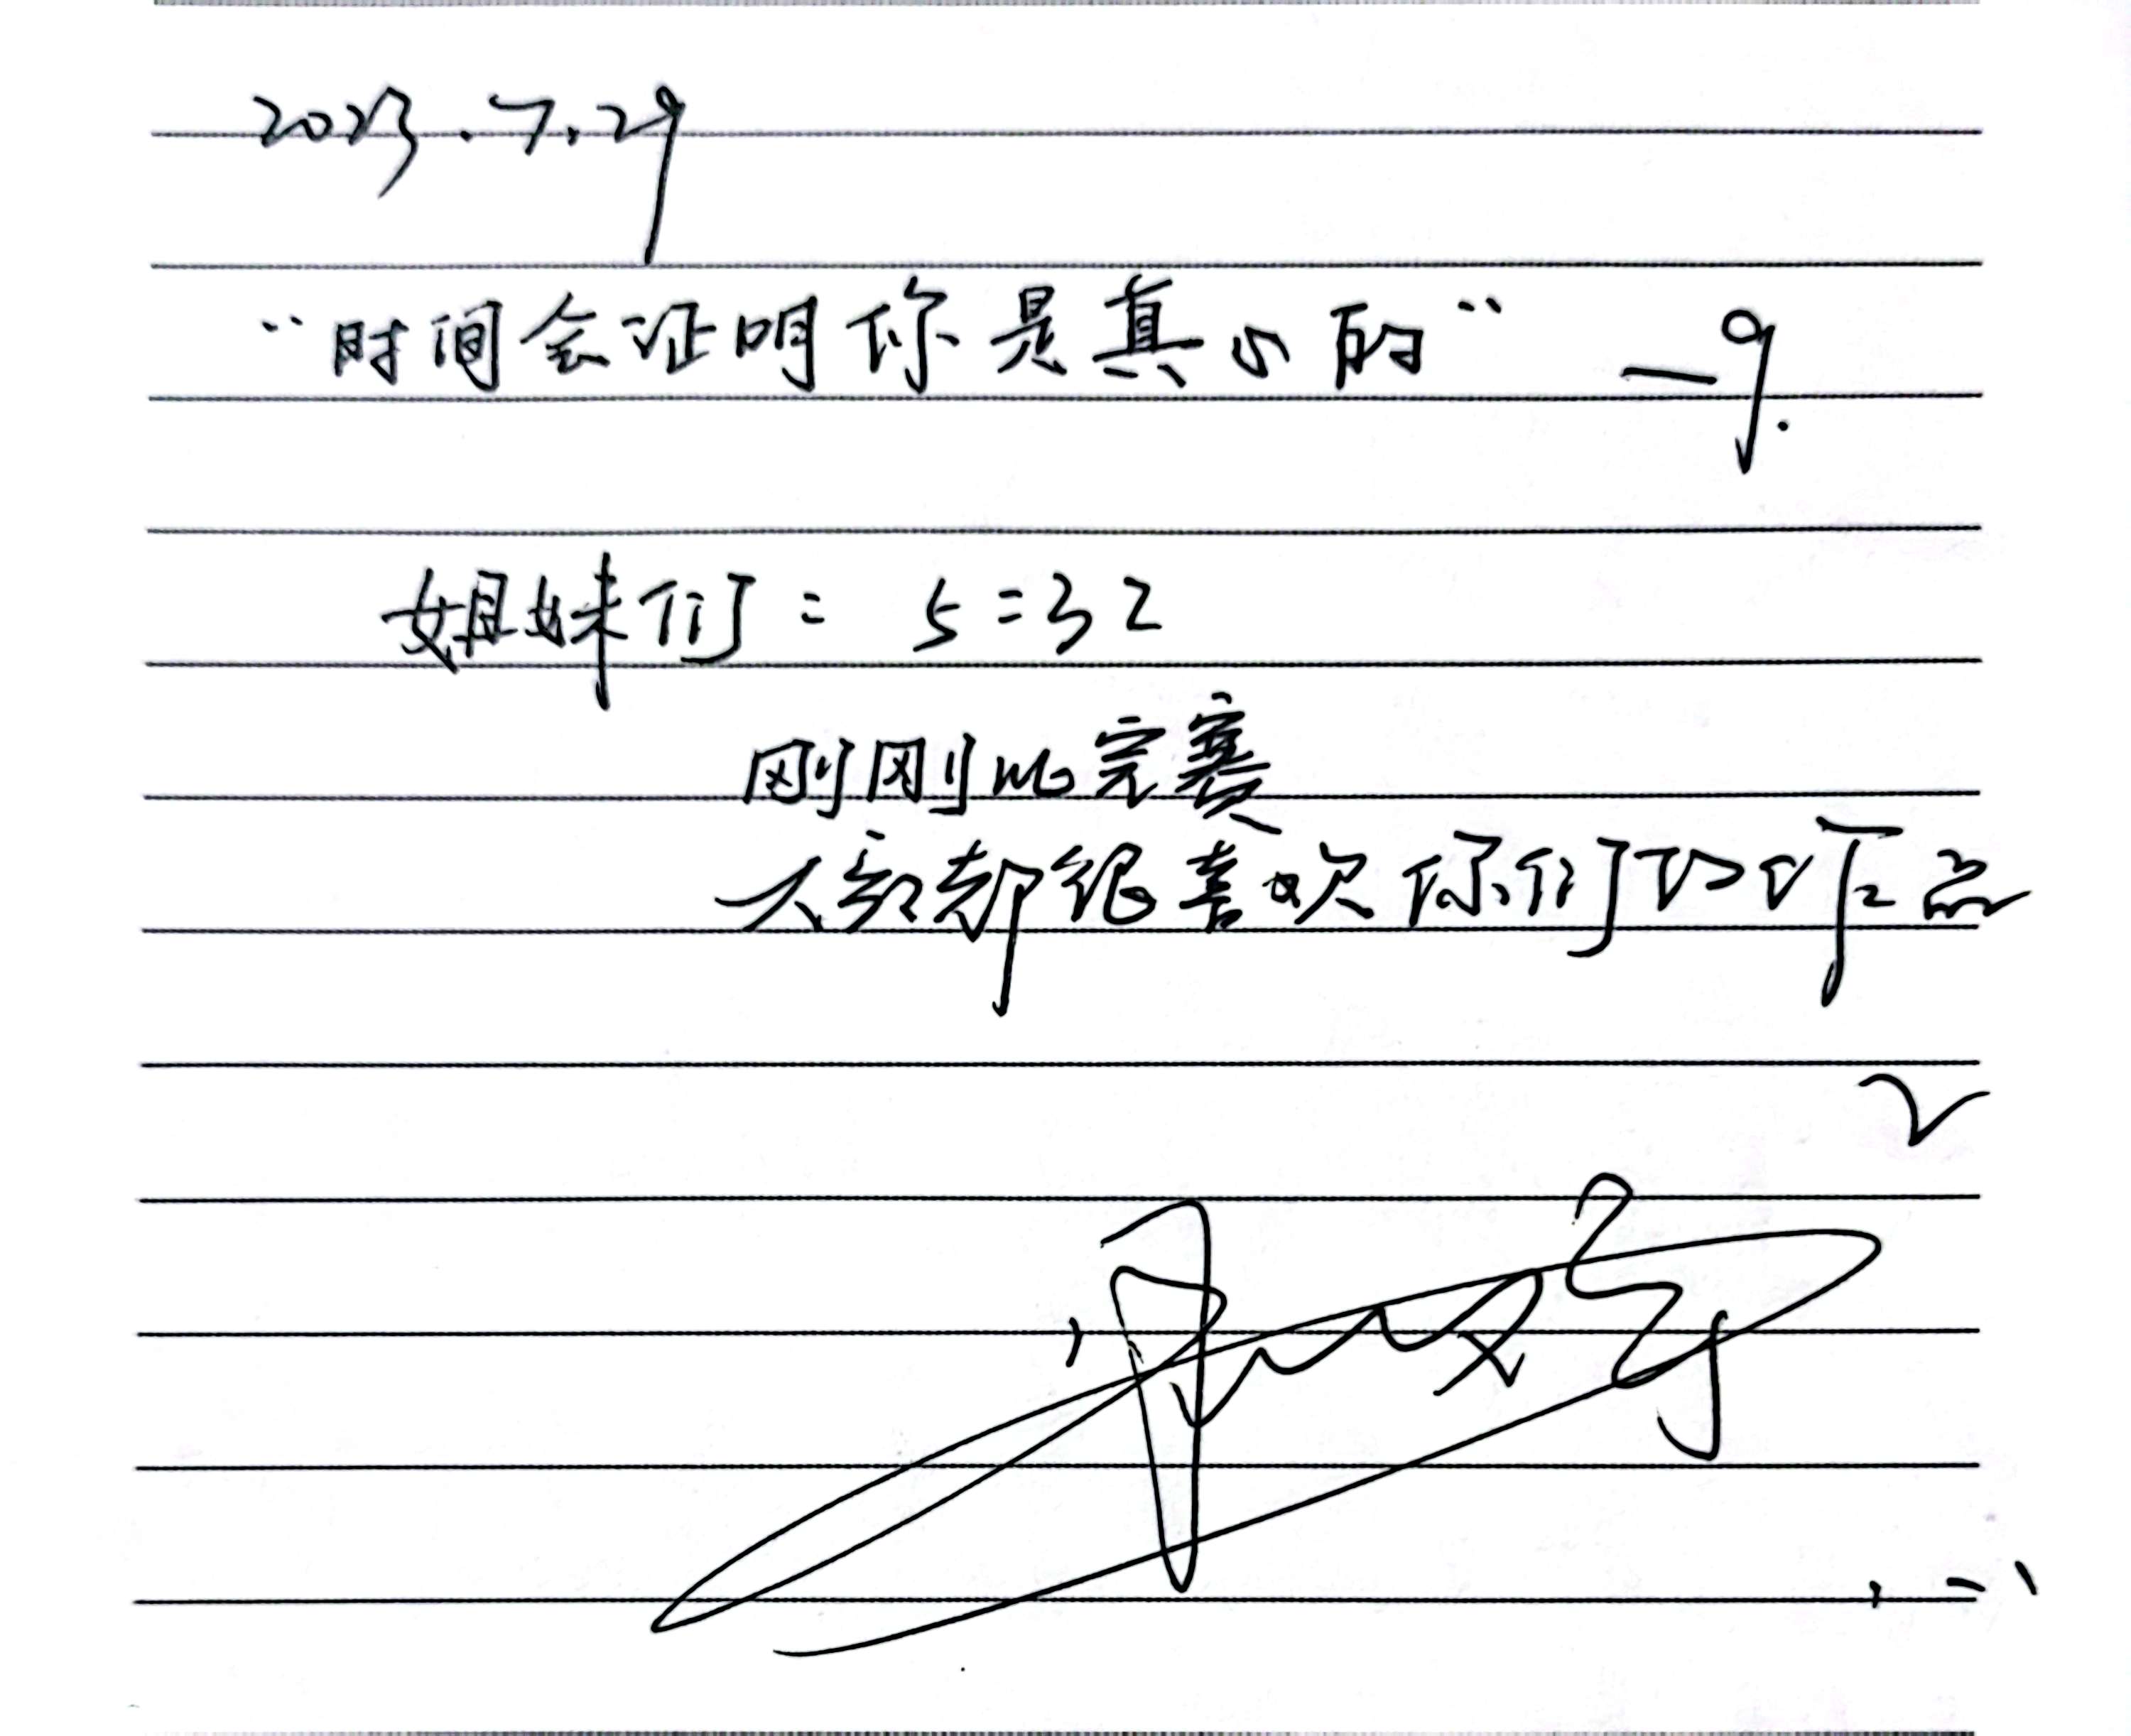 2023.7.29
“时间会证明你是真心的” —9.
姐妹们: 5=32
刚刚比完赛
大部都很喜欢你们的作品